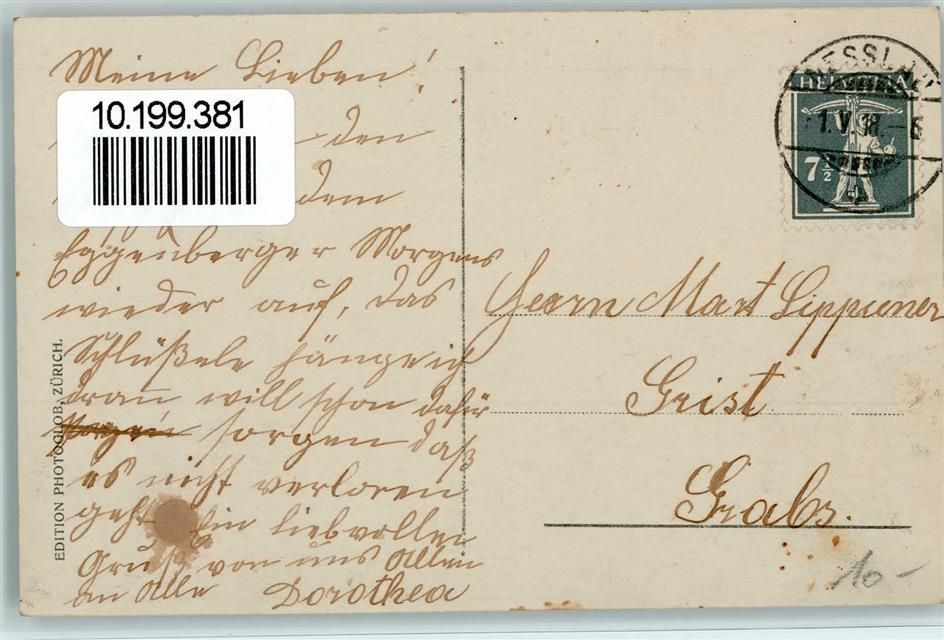 Meine Lieben!
10.199.381
den
dem
Eggenberger Morgens
wieder auf, das
Schlüßele hänge ich
dran will schon dafür
sorgen daß
es nicht verloren
geht. Ein liebvollen
Gruß von uns Allen
an Alle Dorothea
EDITION PHOTOGLOB, ZÜRICH.
NESSLAU
HELVETIA
1.V.18.-6
7½
Herrn Mart Lippuner
Grist
Grabs.
10-